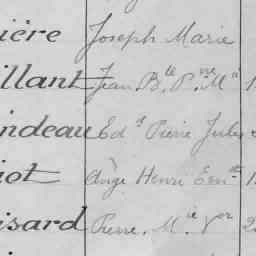 ière Joseph Marie
illant Jean Bte Pre Mie 1
ndeau Ed. Pierre Jules
iot Ange Henri Ern. 1
isard Pierre Mie Vor 2